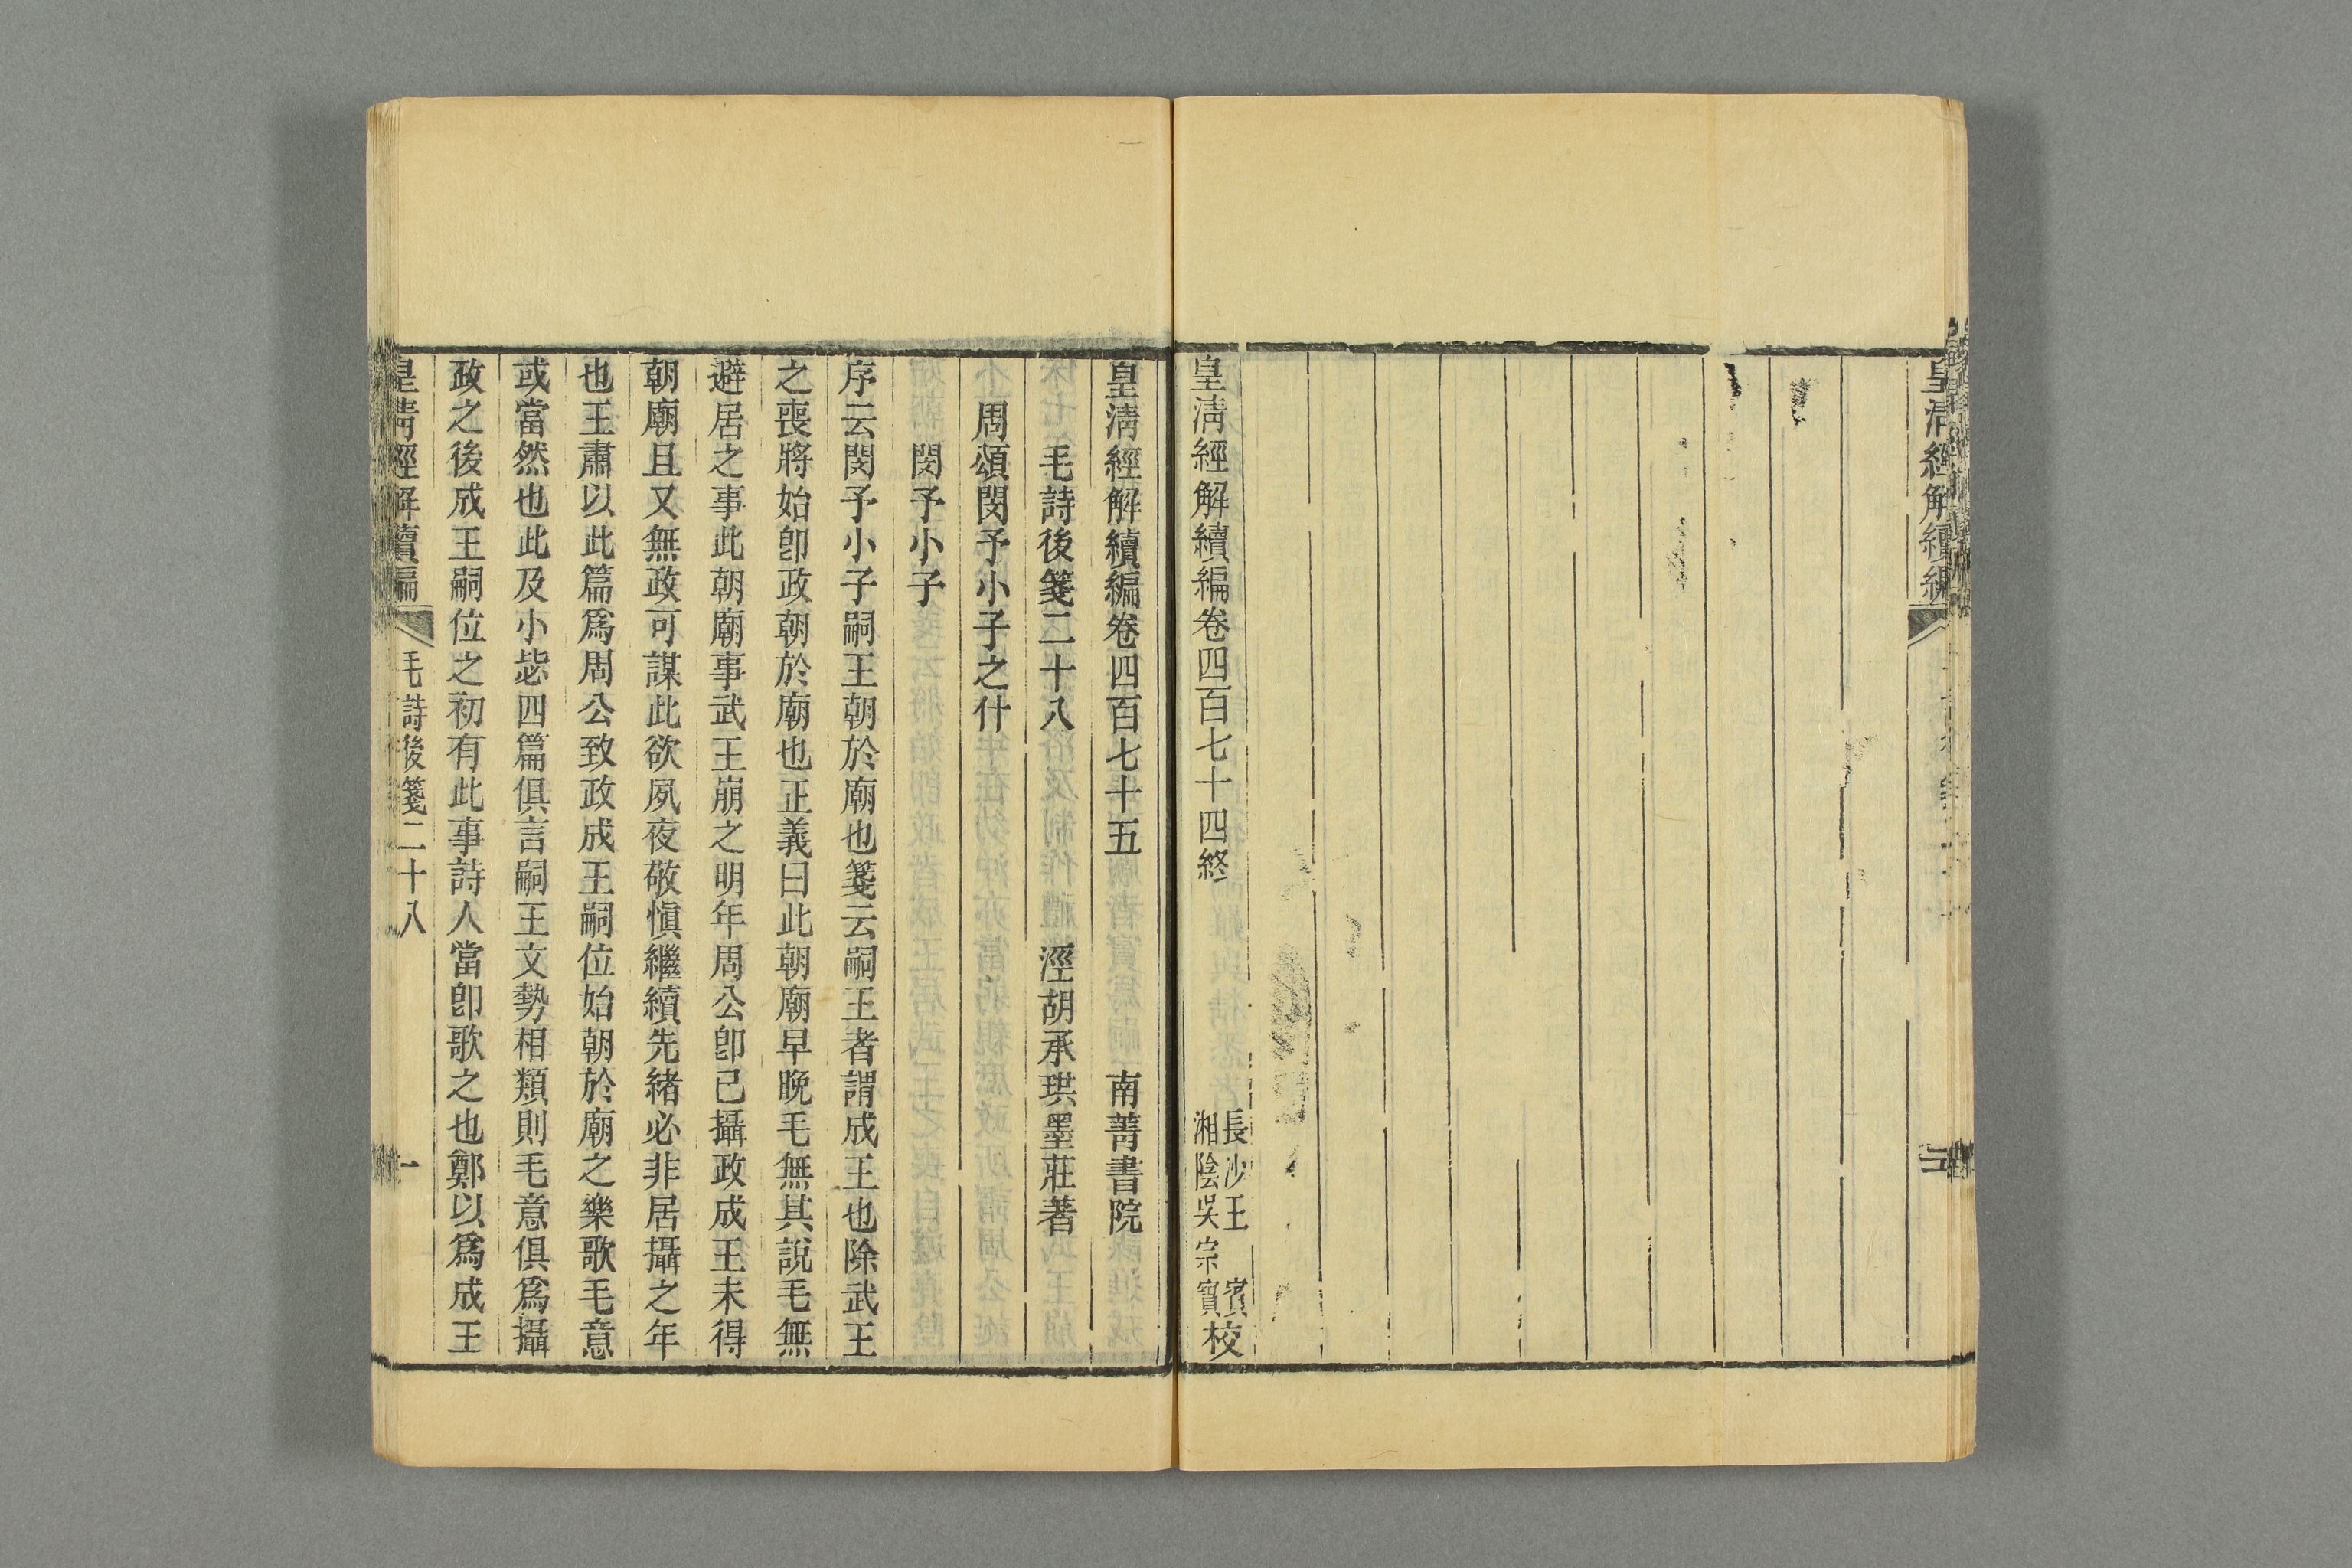 皇清經解續編
皇清經解續編卷四百七十四終
長沙王 賓
湘陰吳宗實校
皇清經解續編卷四百七十五 南菁書院
毛詩後箋二十八 涇胡承珙墨莊著
周頌閔予小子之什
閔予小子
序云閔予小子嗣王朝於廟也箋云嗣王者謂成王也除武王
之喪將始卽政朝於廟也正義曰此朝廟早晚毛無其說毛無
避居之事此朝廟事武王崩之明年周公卽已攝政成王未得
朝廟且又無政可謀此欲夙夜敬愼繼續先緒必非居攝之年
也王肅以此篇爲周公致政成王嗣位始朝於廟之樂歌毛意
或當然也此及小毖四篇俱言嗣王文勢相類則毛意俱爲攝
政之後成王嗣位之初有此事詩人當卽歌之也鄭以爲成王
皇清經解續編 毛詩後箋二十八 一